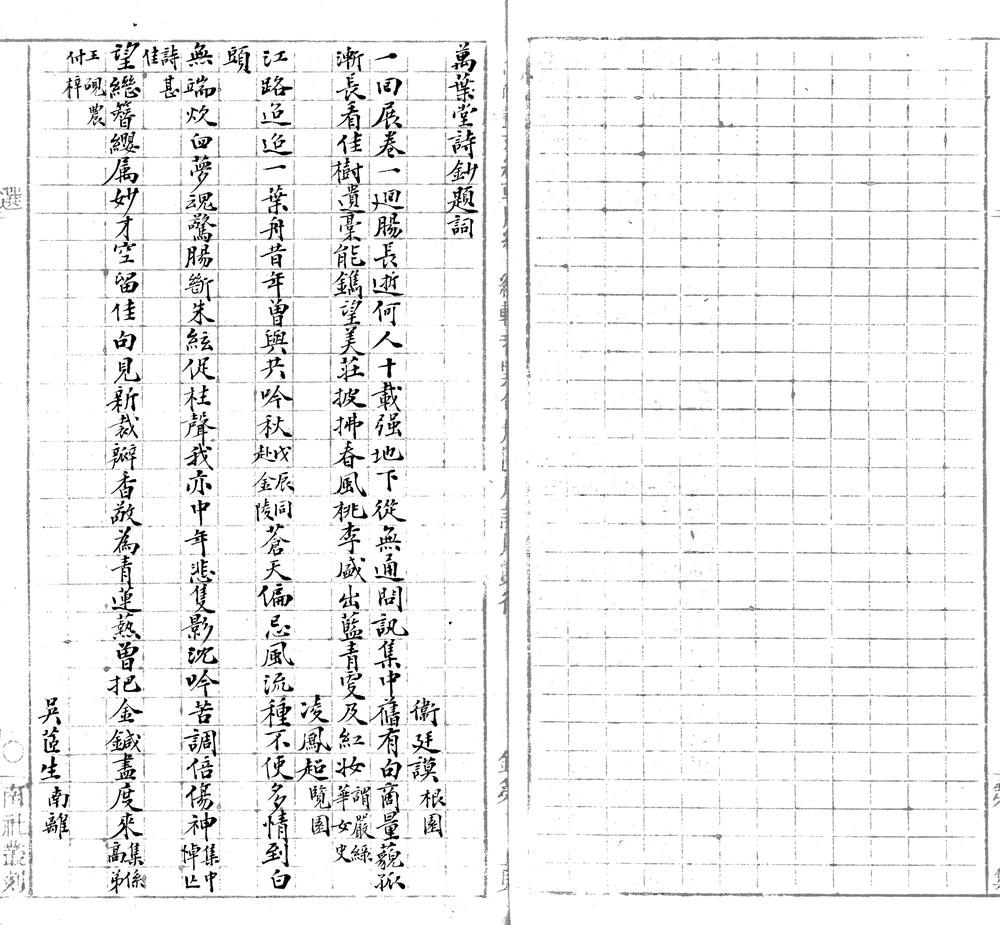 萬葉堂詩鈔題詞
衛廷謨根園
一回展卷一迴腸長逝何人十載强地下從無通問訊集中舊有句商量藐孤
漸長看佳樹遺稾能鐫望美莊披拂春風桃李盛出藍青雯及紅妝謂嚴綠華女史
凌鳳超覽園
江路迢迢一葉舟昔年曾與共吟秋戊辰同赴金陵蒼天偏忌風流種不使多情到白
頭
無端炊臼夢魂驚腸斷朱絃促柱聲我亦中年悲隻影沈吟苦調倍傷神集中悼亡
詩甚佳
望繼簪纓属妙才空留佳句見新裁瓣香敬為青蓮爇曾把金鍼盡度來集係高弟
王硯農付梓
吳茝生南離
選
南社叢刻